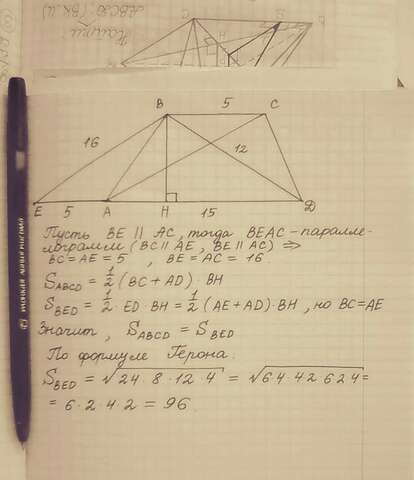 B 5 C
16
12
E 5 A H 15 D
Пусть BE ∥ AC, тогда BEAC – паралле-
лограмм (BC ∥ AE, BE ∥ AC) ⇒
BC = AE = 5, BE = AC = 16.
S_ABCD = 1/2 (BC + AD) · BH
S_BED = 1/2 · ED BH = 1/2 (AE + AD) · BH, но BC = AE
Значит, S_ABCD = S_BED
По формуле Герона:
S_BED = √24 · 8 · 12 · 4 = √6 4 · 4 2 6 2 4 =
= 6 · 2 · 4 · 2 = 96.